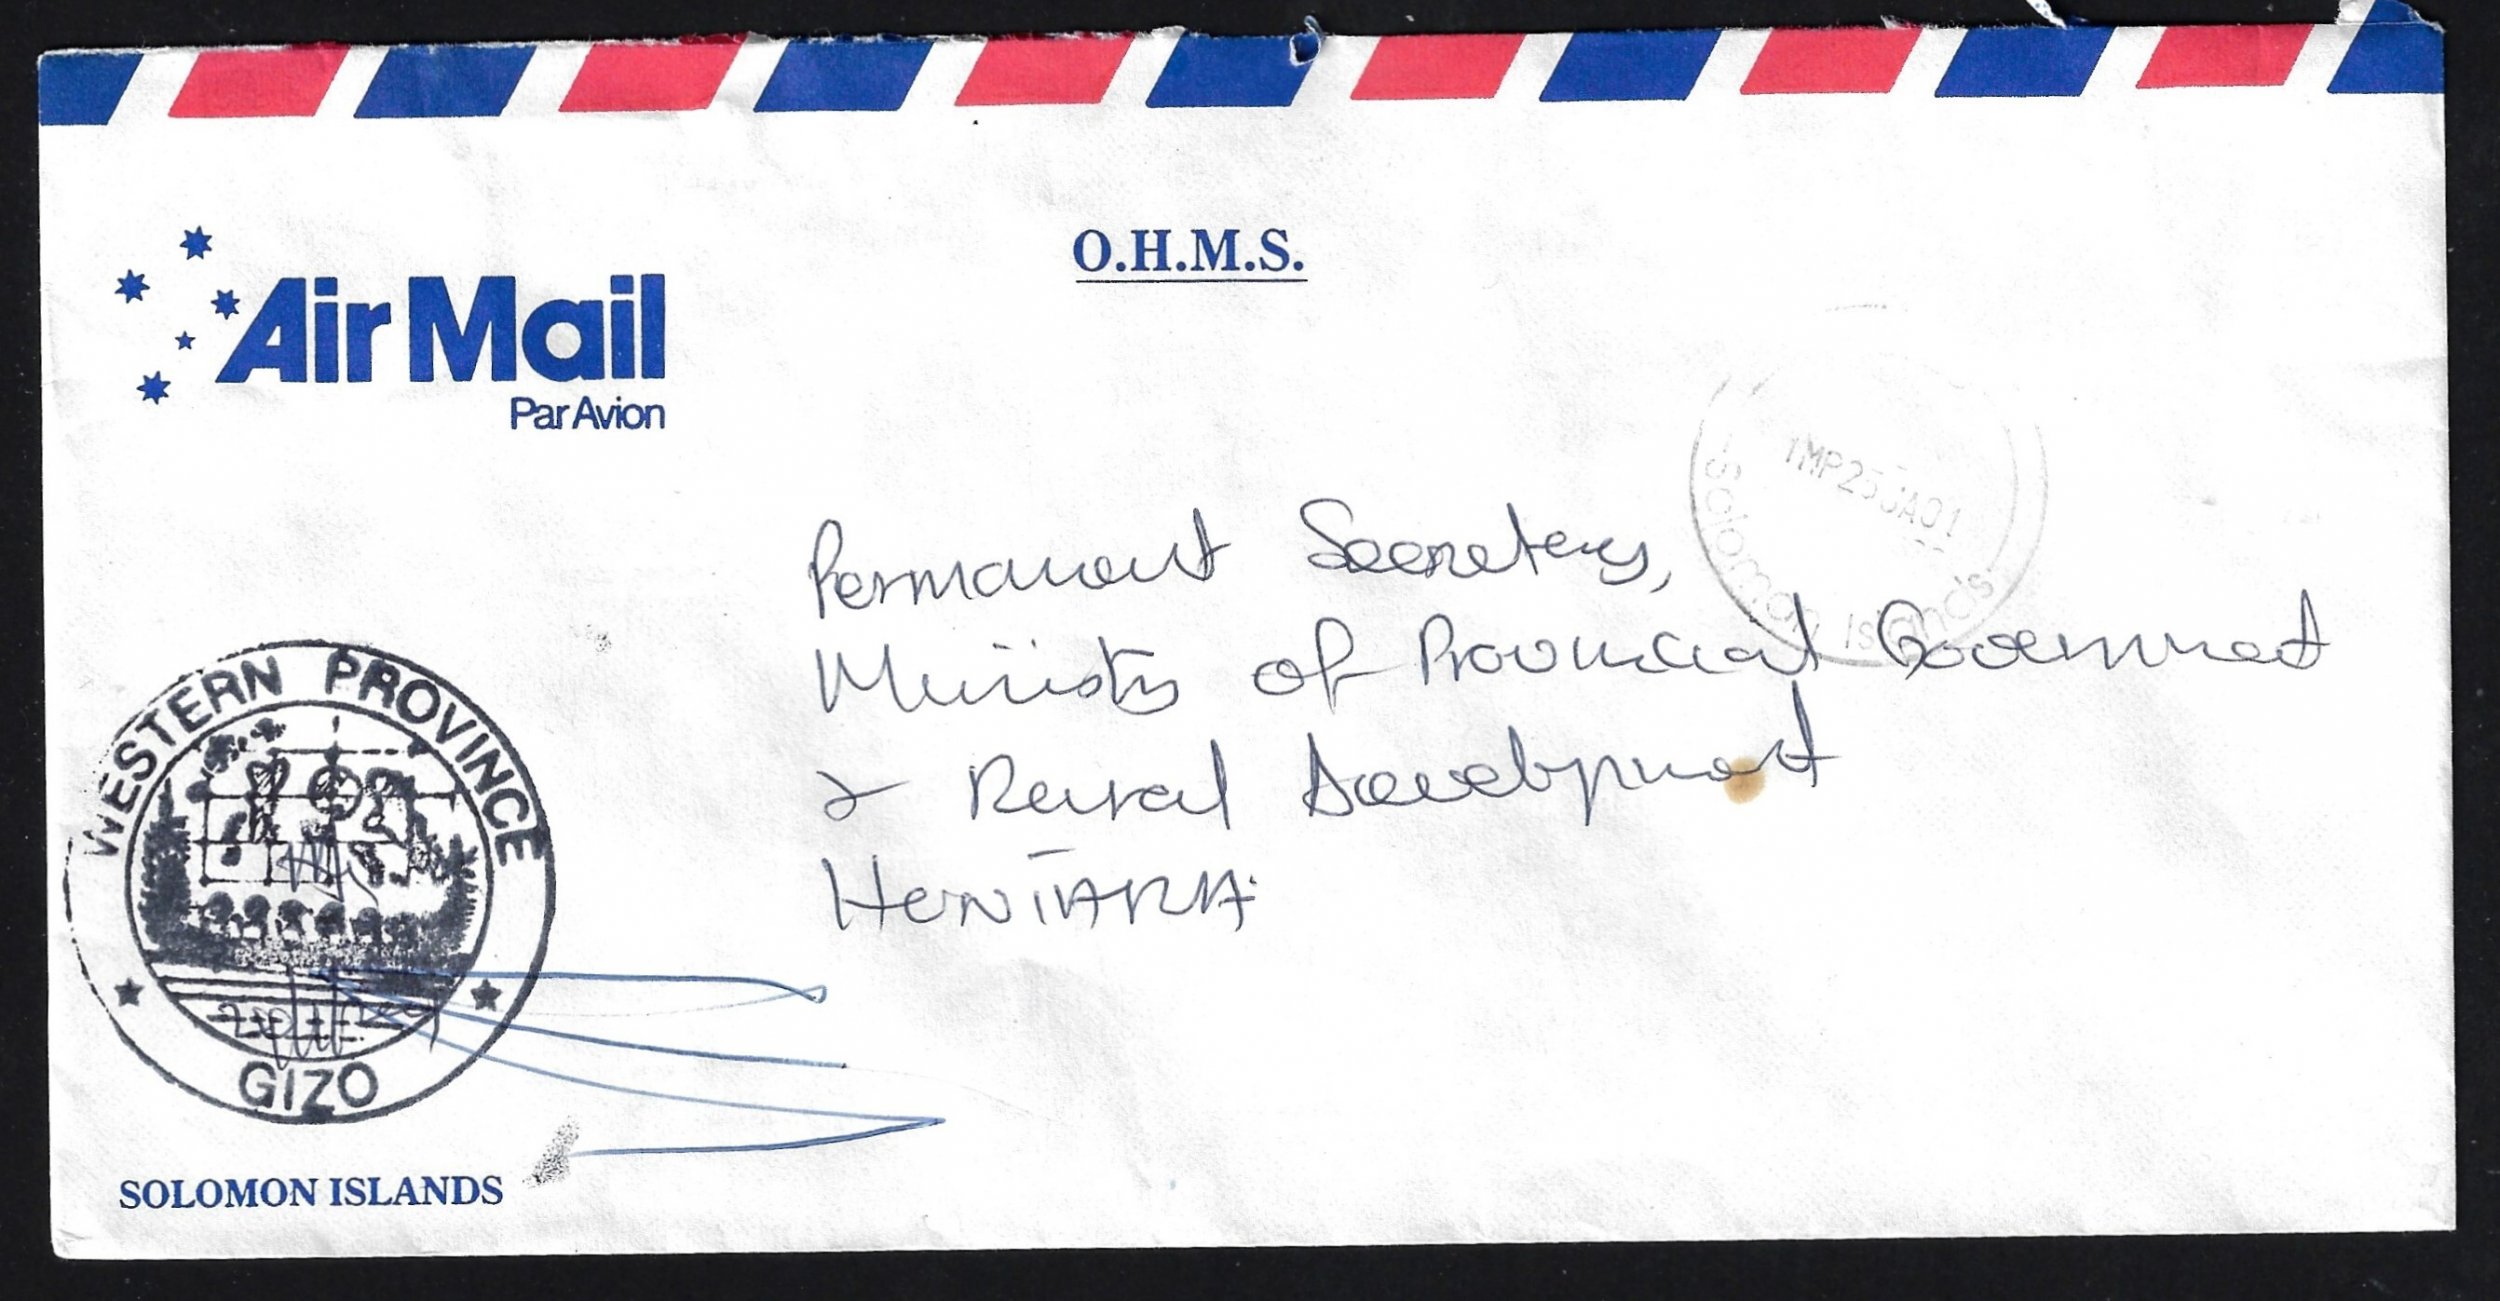 O.H.M.S.
Air Mail
Par Avion
1MP25JA01
Solomon Islands
Permanent Secretary,
Ministry of Provincial Government
& Rural Development
HONIARA
WESTERN PROVINCE
GIZO
SOLOMON ISLANDS